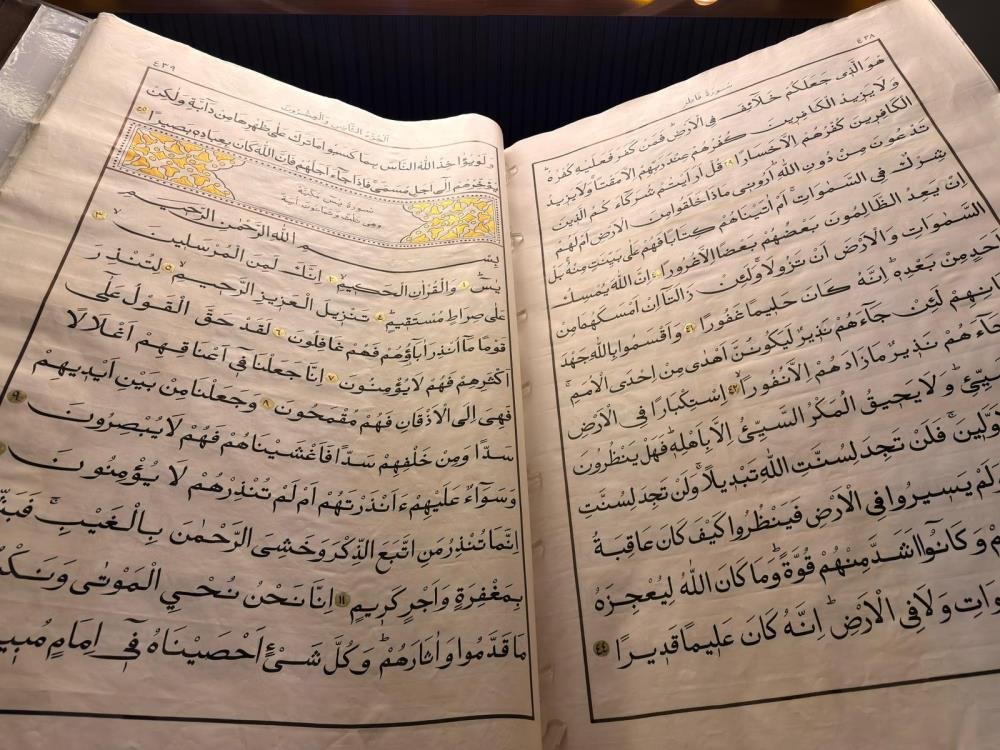 ٤٣٨ سورة فاطر
هُوَ الَّذِي جَعَلَكُمْ خَلَائِفَ فِي الْاَرْضِ فَمَنْ كَفَرَ فَعَلَيْهِ كُفْرُهُ
وَلَا يَزِيدُ الْكَافِرِينَ كُفْرُهُمْ عِنْدَ رَبِّهِمْ اِلَّا مَقْتاً وَلَا يَزِيدُ
الْكَافِرِينَ كُفْرُهُمْ اِلَّا خَسَارًا ٣٩ قُلْ اَرَاَيْتُمْ شُرَكَاءَكُمُ الَّذِينَ
تَدْعُونَ مِنْ دُونِ اللّٰهِ اَرُونِي مَاذَا خَلَقُوا مِنَ الْاَرْضِ اَمْ لَهُمْ
شِرْكٌ فِي السَّمٰوَاتِ اَمْ اٰتَيْنَاهُمْ كِتَابًا فَهُمْ عَلٰى بَيِّنَتٍ مِنْهُ بَلْ
اِنْ يَعِدُ الظَّالِمُونَ بَعْضُهُمْ بَعْضًا اِلَّا غُرُورًا ٤٠ اِنَّ اللّٰهَ يُمْسِكُ
السَّمٰوَاتِ وَالْاَرْضَ اَنْ تَزُولَا وَلَئِنْ زَالَتَا اِنْ اَمْسَكَهُمَا مِنْ
اَحَدٍ مِنْ بَعْدِهِ اِنَّهُ كَانَ حَلِيمًا غَفُورًا ٤١ وَاَقْسَمُوا بِاللّٰهِ جَهْدَ
انِهِمْ لَئِنْ جَاءَهُمْ نَذِيرٌ لَيَكُونُنَّ اَهْدٰى مِنْ اِحْدَى الْاُمَمِ
جَاءَهُمْ نَذِيرٌ مَا زَادَهُمْ اِلَّا نُفُورًا ٤٢ اِسْتِكْبَارًا فِي الْاَرْضِ
سَّيِّئِ وَلَا يَحِيقُ الْمَكْرُ السَّيِّئُ اِلَّا بِاَهْلِهِ فَهَلْ يَنْظُرُونَ
وَّلِينَ فَلَنْ تَجِدَ لِسُنَّتِ اللّٰهِ تَبْدِيلًا وَلَنْ تَجِدَ لِسُنَّتِ
وَلَمْ يَسِيرُوا فِي الْاَرْضِ فَيَنْظُرُوا كَيْفَ كَانَ عَاقِبَةُ
مْ وَكَانُوا اَشَدَّ مِنْهُمْ قُوَّةً وَمَا كَانَ اللّٰهُ لِيُعْجِزَهُ
وَاتِ وَلَا فِي الْاَرْضِ اِنَّهُ كَانَ عَلِيمًا قَدِيرًا ٤٤
٤٣٩ اَلْجُزْءُ الثَّانِي وَالْعِشْرُونَ
وَلَوْ يُؤَاخِذُ اللّٰهُ النَّاسَ بِمَا كَسَبُوا مَا تَرَكَ عَلٰى ظَهْرِهَا مِنْ دَابَّةٍ وَلٰكِنْ
يُؤَخِّرُهُمْ اِلٰى اَجَلٍ مُسَمًّى فَاِذَا جَاءَ اَجَلُهُمْ فَاِنَّ اللّٰهَ كَانَ بِعِبَادِهِ بَصِيرًا ٤٥
سُورَةُ يٰسۤ مَكِّيَّة
وهي ثلث وثمانون آية
بِسْمِ اللّٰهِ الرَّحْمٰنِ الرَّحِيمِ
يٰسۤ ١ وَالْقُرْاٰنِ الْحَكِيمِ ٢ اِنَّكَ لَمِنَ الْمُرْسَلِينَ ٣
عَلٰى صِرَاطٍ مُسْتَقِيمٍ ٤ تَنْزِيلَ الْعَزِيزِ الرَّحِيمِ ٥ لِتُنْذِرَ
قَوْمًا مَا اُنْذِرَ اٰبَاؤُهُمْ فَهُمْ غَافِلُونَ ٦ لَقَدْ حَقَّ الْقَوْلُ عَلٰى
اَكْثَرِهِمْ فَهُمْ لَا يُؤْمِنُونَ ٧ اِنَّا جَعَلْنَا فِي اَعْنَاقِهِمْ اَغْلَالًا
فَهِيَ اِلَى الْاَذْقَانِ فَهُمْ مُقْمَحُونَ ٨ وَجَعَلْنَا مِنْ بَيْنِ اَيْدِيهِمْ
سَدًّا وَمِنْ خَلْفِهِمْ سَدًّا فَاَغْشَيْنَاهُمْ فَهُمْ لَا يُبْصِرُونَ ٩
وَسَوَاءٌ عَلَيْهِمْ ءَاَنْذَرْتَهُمْ اَمْ لَمْ تُنْذِرْهُمْ لَا يُؤْمِنُونَ
اِنَّمَا تُنْذِرُ مَنِ اتَّبَعَ الذِّكْرَ وَخَشِيَ الرَّحْمٰنَ بِالْغَيْبِ فَبَشِّ
بِمَغْفِرَةٍ وَاَجْرٍ كَرِيمٍ ١١ اِنَّا نَحْنُ نُحْيِي الْمَوْتٰى وَنَكْ
مَا قَدَّمُوا وَاٰثَارَهُمْ وَكُلَّ شَيْءٍ اَحْصَيْنَاهُ فِي اِمَامٍ مُبِي